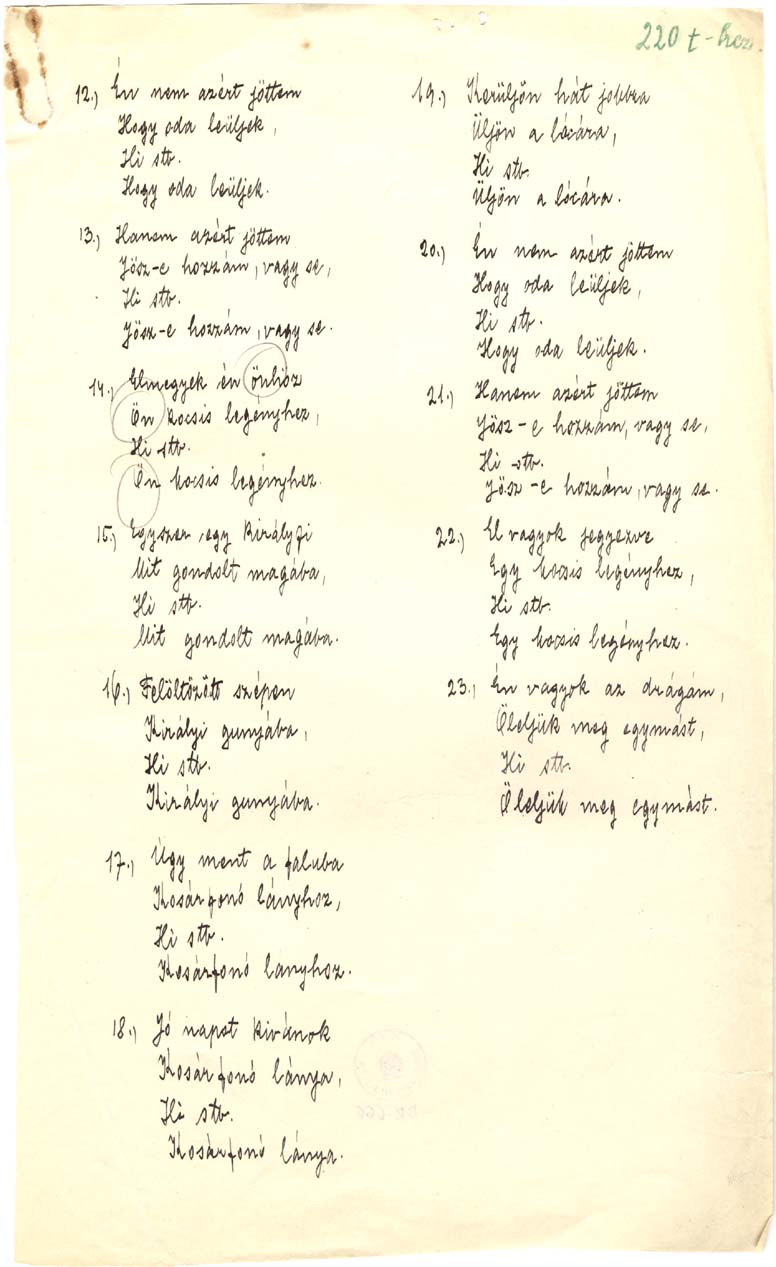 220 t-hez.
12., Én nem azért jöttem
Hogy oda leüljek,
Hi stb.
Hogy oda leüljek.
13., Hanem azért jöttem
Jösz-e hozzám, vagy se,
Hi stb.
Jösz-e hozzám, vagy se.
14., Elmegyek én önhöz
Ön kocsis legényhez,
Hi stb.
Ön kocsis legényhez.
15., Egyszer egy királyfi
Mit gondolt magába,
Hi stb.
Mit gondolt magába.
16., Felöltözött szépen
Királyi gunyába,
Hi stb.
Királyi gunyába.
17., Úgy ment a faluba
Kosárfonó lányhoz,
Hi stb.
Kosárfonó lanyhoz.
18., Jó napot kivánok
Kosárfonó lánya,
Hi stb.
Kosárfonó lánya.
19., Kerüljön hát jobbra
Üljön a lócára,
Hi stb.
Üljön a lócára.
20., Én nem azért jöttem
Hogy oda leüljek,
Hi stb.
Hogy oda leüljek.
21., Hanem azért jöttem
Jösz-e hozzám, vagy se,
Hi stb.
Jösz-e hozzám, vagy se.
22., El vagyok jegyezve
Egy kocsis legényhez,
Hi stb.
Egy kocsis legényhez.
23., Én vagyok az drágám,
Öleljük meg egymást,
Hi stb.
Öleljük meg egymást.